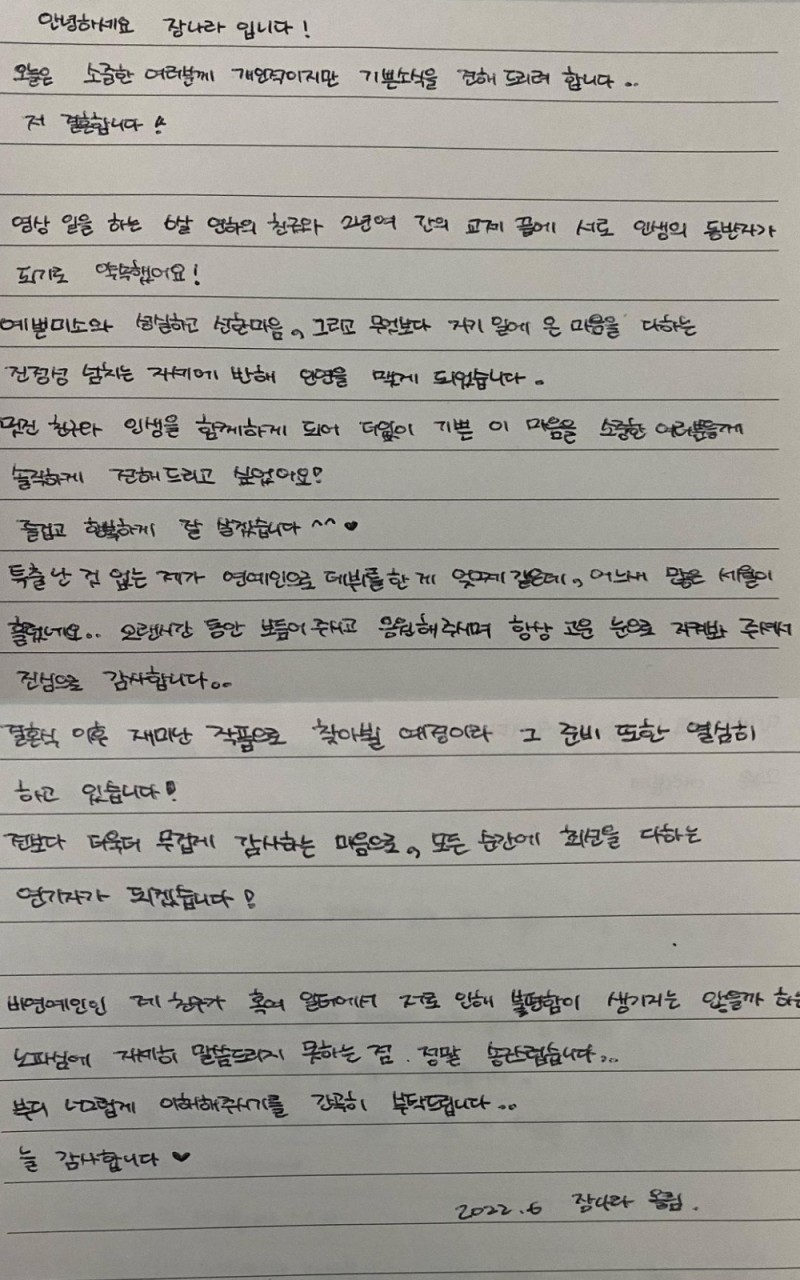 안녕하세요 장나라 입니다!
오늘은 소중한 여러분께 개인적이지만 기쁜소식을 전해 드리려 합니다..
저 결혼합니다!
영상 일을 하는 6살 연하의 친구와 2년여 간의 교제 끝에 서로 인생의 동반자가
되기로 약속했어요!
예쁜미소와 성실하고 선한마음, 그리고 무엇보다 자기 일에 온 마음을 다하는
진정성 넘치는 자세에 반해 인연을 맺게 되었습니다.
멋진 친구와 인생을 함께하게 되어 더없이 기쁜 이 마음을 소중한 여러분들께
솔직하게 전해드리고 싶었어요!
즐겁고 행복하게 잘 살겠습니다 ^^ ♥
특출난 것 없는 제가 연예인으로 데뷔를한 게 엊그제 같은데, 어느새 많은 세월이
흘렀네요.. 오랜시간 동안 보듬어주시고 응원해주시며 항상 고운 눈으로 지켜봐 주셔서
진심으로 감사합니다..
결혼식 이후 재미난 작품으로 찾아뵐 예정이라 그 준비 또한 열심히
하고 있습니다!
전보다 더욱더 무겁게 감사하는 마음으로, 모든 순간에 최선을 다하는
연기자가 되겠습니다!
비연예인인 제 친구가 혹여 일터에서 저로 인해 불편함이 생기지는 않을까 하는
노파심에 자세히 말씀드리지 못하는 점. 정말 송구스럽습니다..
부디 너그럽게 이해해주시기를 간곡히 부탁드립니다..
늘 감사합니다 ♥
2022.6 장나라 올림.